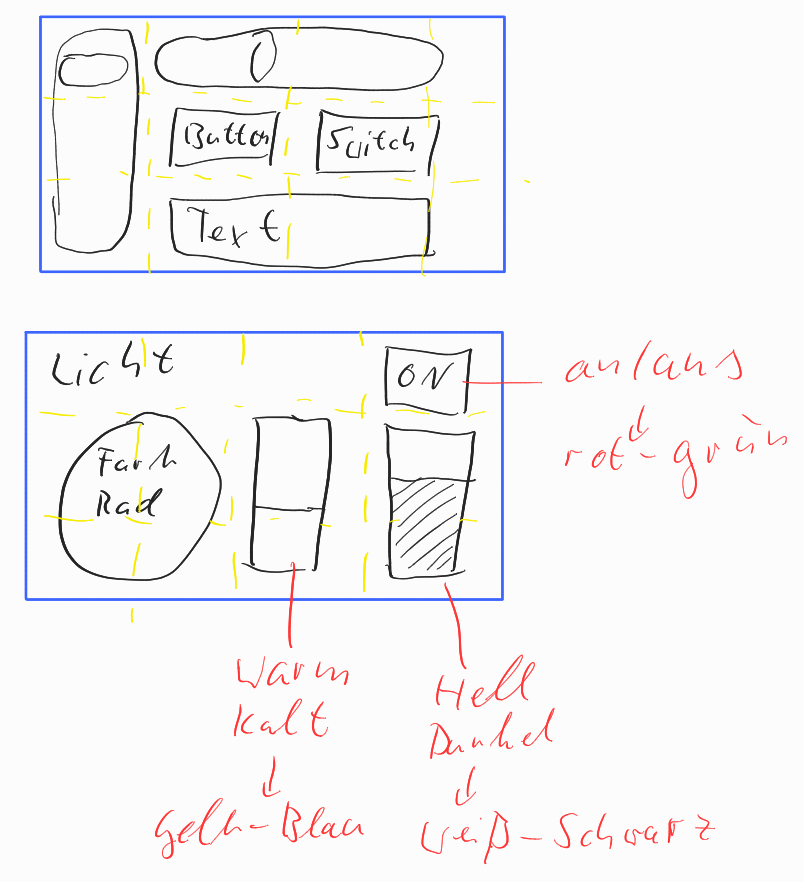 Button
Switch
Text
Licht
ON
an/aus
rot-grün
Farb
Rad
Warm
Kalt
Hell
Dunkel
Gelb-Blau
Weiß-Schwarz